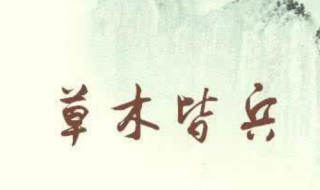 草木皆兵